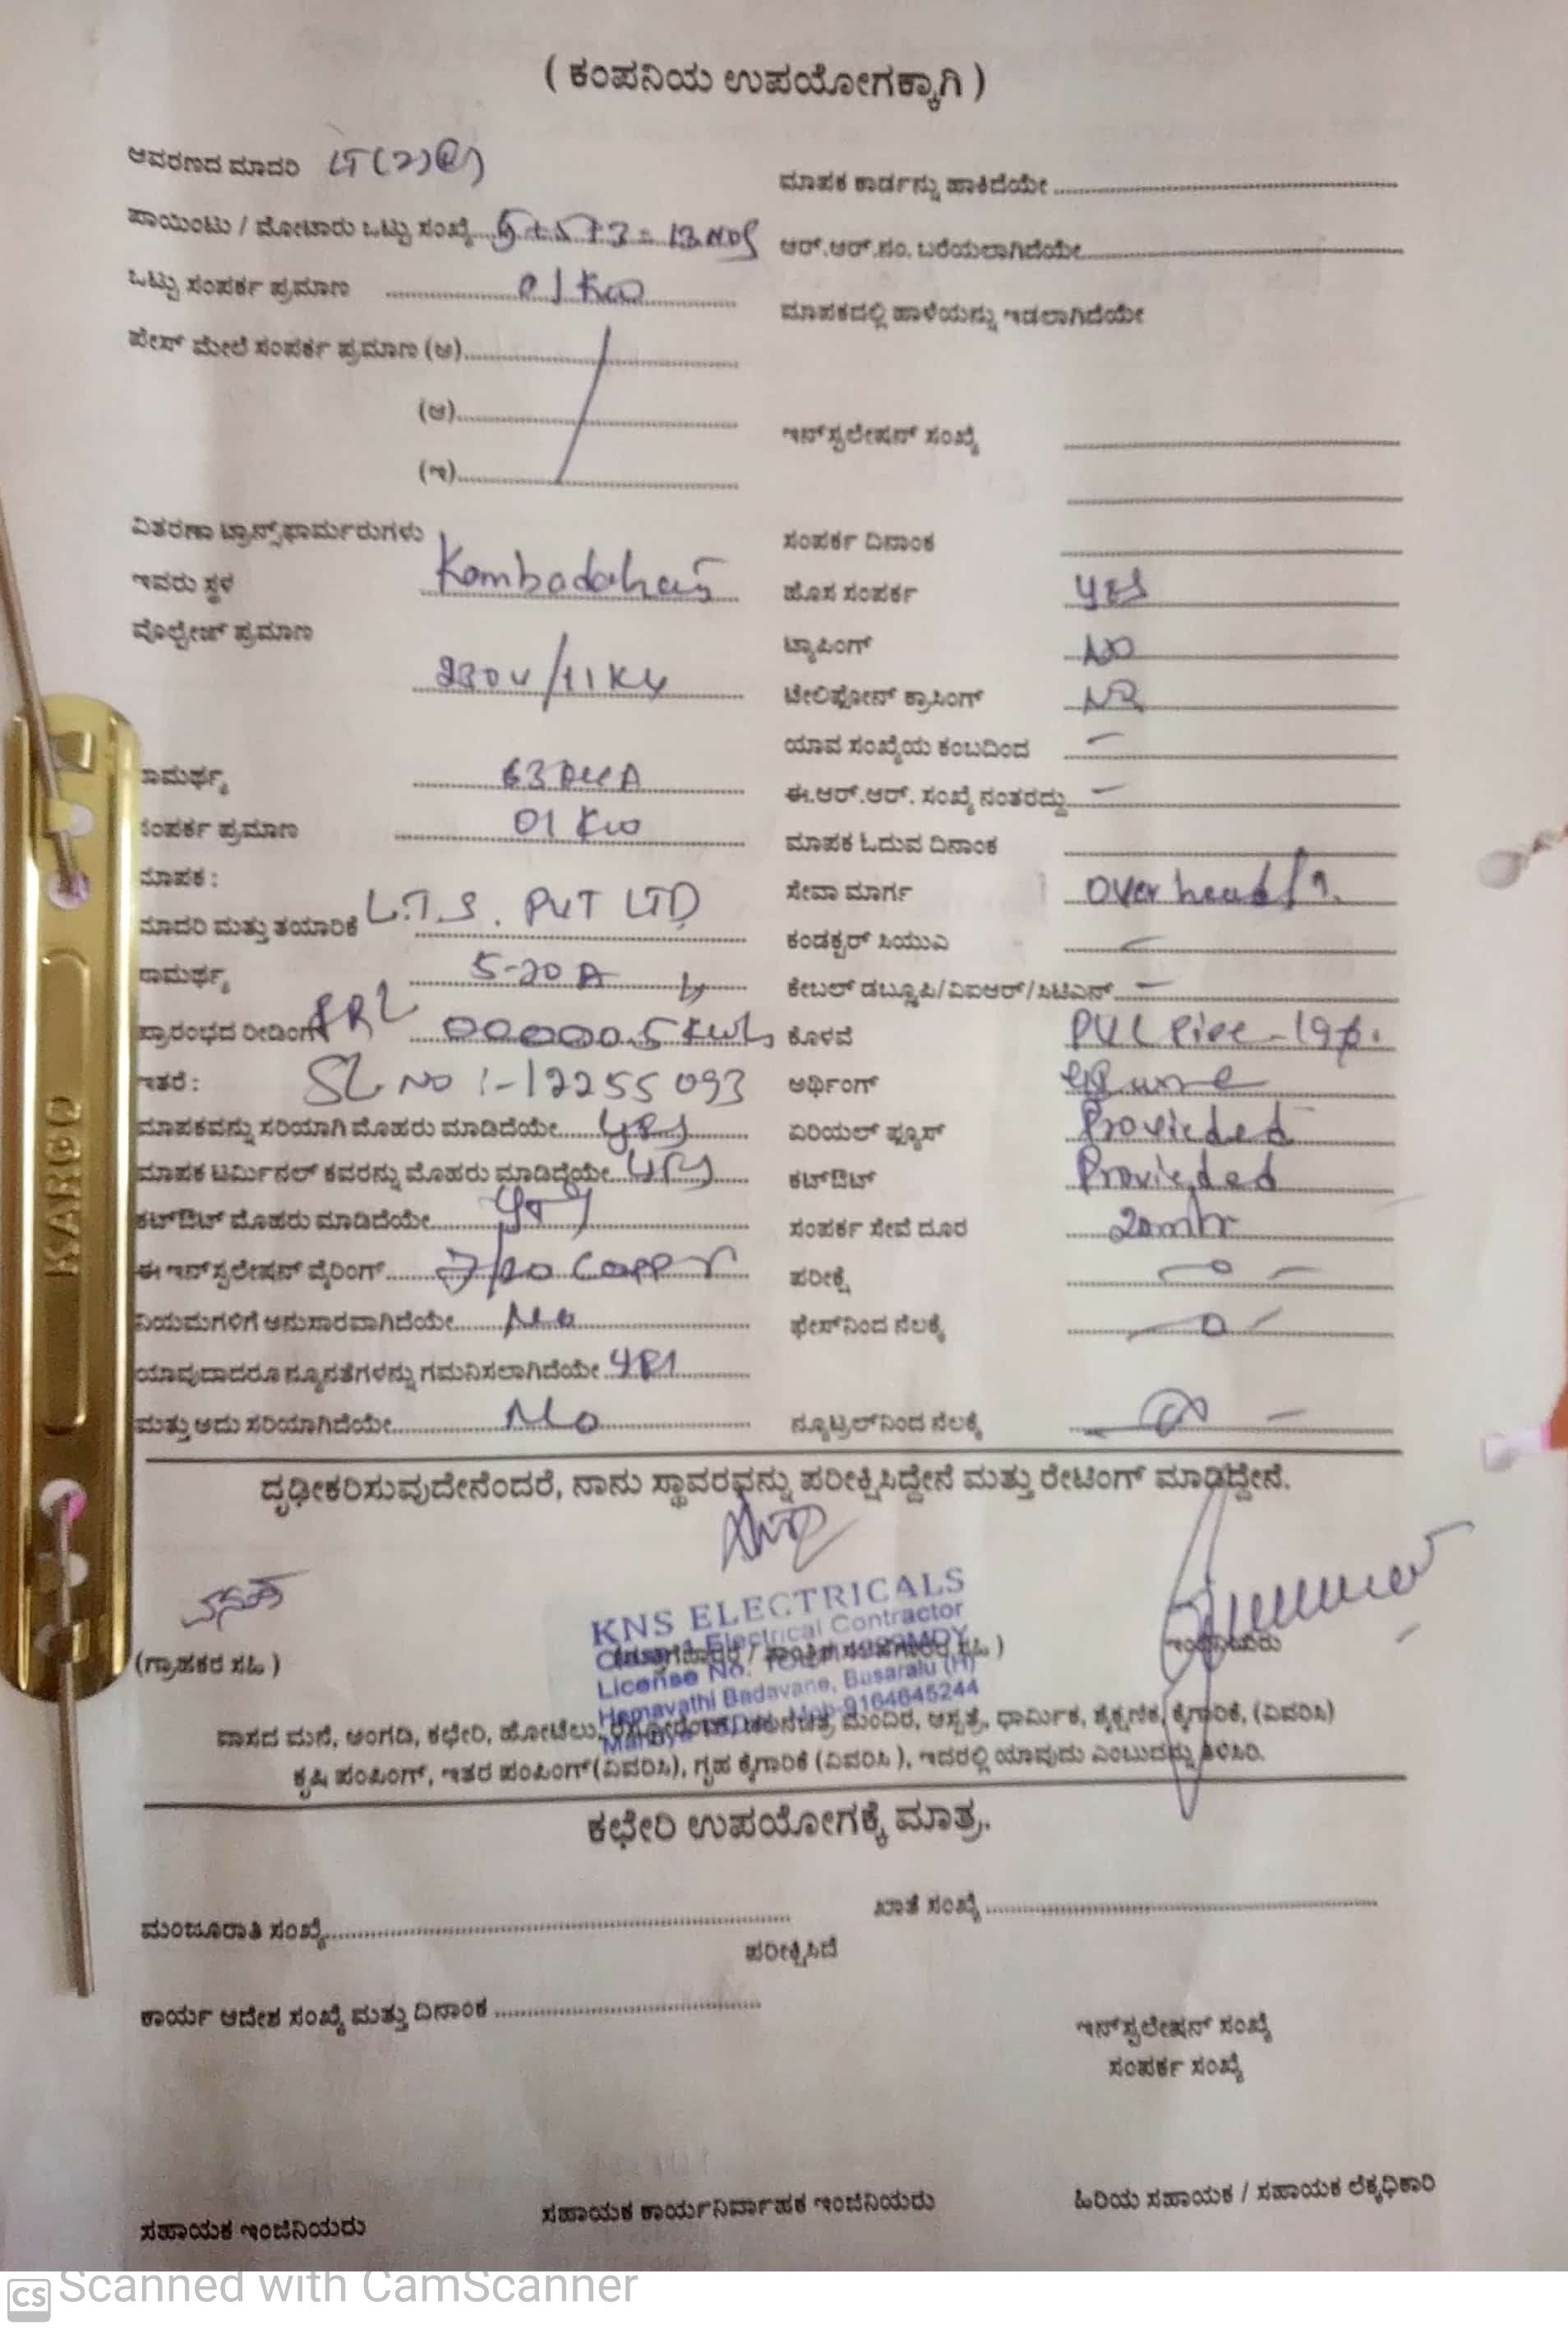 ( ಕಂಪನಿಯ ಉಪಯೋಗಕ್ಕಾಗಿ )
ಆವರಣದ ಮಾದರಿ LT(2)
ಪಾಯಿಂಟು / ಮೋಟಾರು ಒಟ್ಟು ಸಂಖ್ಯೆ 5+5+3=13 NOS
ಒಟ್ಟು ಸಂಪರ್ಕ ಪ್ರಮಾಣ 01 KW
ಫೇಸ್ ಮೇಲೆ ಸಂಪರ್ಕ ಪ್ರಮಾಣ (ಅ)
(ಆ)
(ಇ)
ವಿತರಣಾ ಟ್ರಾನ್ಸ್‌ಫಾರ್ಮರುಗಳು
ಇವರು ಸ್ಥಳ
ವೊಲ್ಟೇಜ್ ಪ್ರಮಾಣ
230V/11KV
ಸಾಮರ್ಥ್ಯ 63
ಸಂಪರ್ಕ ಪ್ರಮಾಣ 01 KW
ಮಾಪಕ :
ಮಾದರಿ ಮತ್ತು ತಯಾರಿಕೆ L.T.S. PVT LTD
ಸಾಮರ್ಥ್ಯ 5-20 A
ಪ್ರಾರಂಭದ ರೀಡಿಂಗ್ 00000.5 KWh
ಇತರೆ : SL NO :- 12255093
ಮಾಪಕವನ್ನು ಸರಿಯಾಗಿ ಮೊಹರು ಮಾಡಿದೆಯೇ yes
ಮಾಪಕ ಟರ್ಮಿನಲ್ ಕವರನ್ನು ಮೊಹರು ಮಾಡಿದ್ದೆಯೇ yes
ಕಟ್‌ಔಟ್ ಮೊಹರು ಮಾಡಿದೆಯೇ yes
ಈ ಇನ್‌ಸ್ಟಲೇಷನ್ ವೈರಿಂಗ್ 7/20 Copper
ನಿಯಮಗಳಿಗೆ ಅನುಸಾರವಾಗಿದೆಯೇ No
ಯಾವುದಾದರೂ ನ್ಯೂನತೆಗಳನ್ನು ಗಮನಿಸಲಾಗಿದೆಯೇ yes
ಮತ್ತು ಅದು ಸರಿಯಾಗಿದೆಯೇ No
ಮಾಪಕ ಕಾರ್ಡನ್ನು ಹಾಕಿದೆಯೇ
ಆರ್.ಆರ್.ನಂ. ಬರೆಯಲಾಗಿದೆಯೇ
ಮಾಪಕದಲ್ಲಿ ಹಾಳೆಯನ್ನು ಇಡಲಾಗಿದೆಯೇ
ಇನ್‌ಸ್ಟಲೇಷನ್ ಸಂಖ್ಯೆ
ಸಂಪರ್ಕ ದಿನಾಂಕ
ಹೊಸ ಸಂಪರ್ಕ YES
ಟ್ಯಾಪಿಂಗ್ NO
ಟೇಲಿಫೋನ್ ಕ್ರಾಸಿಂಗ್ NO
ಯಾವ ಸಂಖ್ಯೆಯ ಕಂಬದಿಂದ —
ಈ.ಆರ್.ಆರ್. ಸಂಖ್ಯೆ ನಂತರದ್ದು —
ಮಾಪಕ ಓದುವ ದಿನಾಂಕ
ಸೇವಾ ಮಾರ್ಗ Over head
ಕಂಡಕ್ಟರ್ ಸಿಯುಎ —
ಕೇಬಲ್ ಡಬ್ಲೂಪಿ/ವಿಐಆರ್/ಸಿಟಿಎಸ್ —
ಕೊಳವೆ PVC Pipe - 19
ಅರ್ಥಿಂಗ್
ಏರಿಯಲ್ ಫ್ಯೂಸ್ Provieded
ಕಟ್‌ಔಟ್ Provieded
ಸಂಪರ್ಕ ಸೇವೆ ದೂರ 20mtr
ಪರೀಕ್ಷೆ — 0 —
ಫೇಸ್‌ನಿಂದ ನೆಲಕ್ಕೆ — 0 —
ನ್ಯೂಟ್ರಲ್‌ನಿಂದ ನೆಲಕ್ಕೆ
ದೃಢೀಕರಿಸುವುದೇನೆಂದರೆ, ನಾನು ಸ್ಥಾವರವನ್ನು ಪರೀಕ್ಷಿಸಿದ್ದೇನೆ ಮತ್ತು ರೇಟಿಂಗ್ ಮಾಡಿದ್ದೇನೆ.
KNS ELECTRICALS
Electrical Contractor
License No.
Hemavathi Badavane, Busaralu (H)
Mob-9164645244
(ಗ್ರಾಹಕರ ಸಹಿ )
ವಾಸದ ಮನೆ, ಅಂಗಡಿ, ಕಛೇರಿ, ಹೋಟೆಲು, ಮಂದಿರ, ಆಸ್ಪತ್ರೆ, ಧಾರ್ಮಿಕ, ಶೈಕ್ಷಣಿಕ, ಕೈಗಾರಿಕೆ, (ವಿವರಿಸಿ)
ಕೃಷಿ ಪಂಪಿಂಗ್, ಇತರ ಪಂಪಿಂಗ್(ವಿವರಿಸಿ), ಗೃಹ ಕೈಗಾರಿಕೆ (ವಿವರಿಸಿ), ಇದರಲ್ಲಿ ಯಾವುದು ಎಂಬುದನ್ನು ತಿಳಿಸಿರಿ.
ಕಛೇರಿ ಉಪಯೋಗಕ್ಕೆ ಮಾತ್ರ.
ಮಂಜೂರಾತಿ ಸಂಖ್ಯೆ
ಖಾತೆ ಸಂಖ್ಯೆ
ಪರೀಕ್ಷಿಸಿದೆ
ಕಾರ್ಯ ಆದೇಶ ಸಂಖ್ಯೆ ಮತ್ತು ದಿನಾಂಕ
ಇನ್‌ಸ್ಟಲೇಷನ್ ಸಂಖ್ಯೆ
ಸಂಪರ್ಕ ಸಂಖ್ಯೆ
ಸಹಾಯಕ ಇಂಜಿನಿಯರು
ಸಹಾಯಕ ಕಾರ್ಯನಿರ್ವಾಹಕ ಇಂಜಿನಿಯರು
ಹಿರಿಯ ಸಹಾಯಕ / ಸಹಾಯಕ ಲೆಕ್ಕಧಿಕಾರಿ
KARBO
CS Scanned with CamScanner